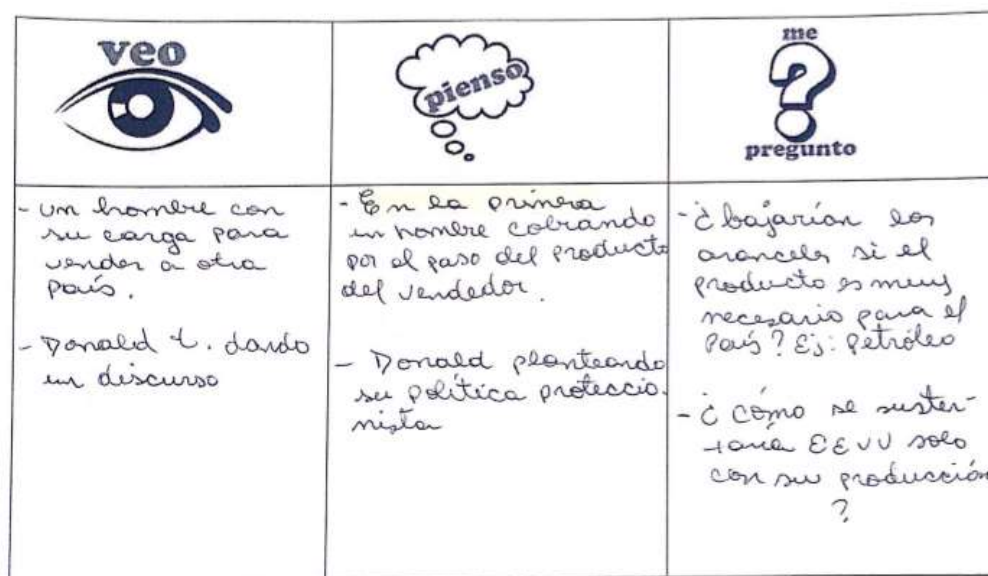 veo
pienso
me
pregunto
- Un hombre con
su carga para
vender a otro
país.
- Donald t. dando
un discurso
- En la primera
un hombre cobrando
por el paso del producto
del vendedor.
- Donald planteando
su política proteccio-
nista
- ¿bajarían los
aranceles si el
producto es muy
necesario para el
país? Ej: petróleo
- ¿cómo se susten-
taría EEUU solo
con su producción
?